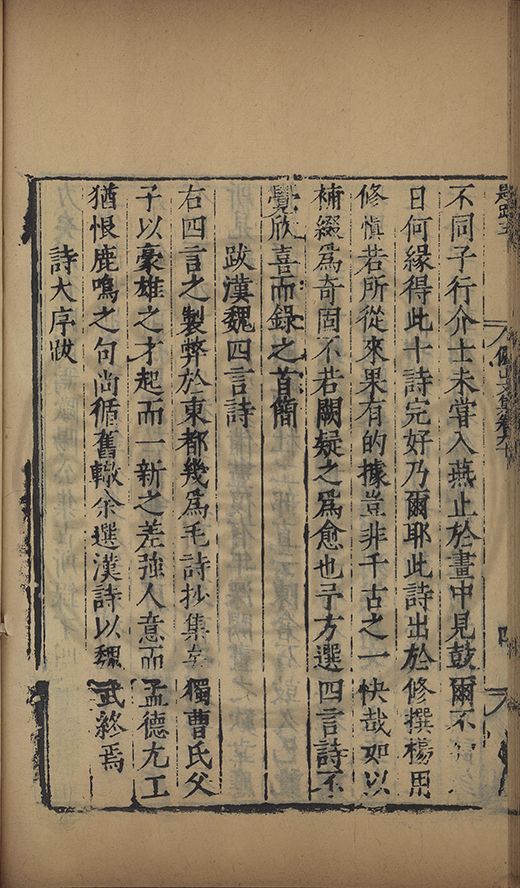 不同子行介士未嘗入燕止於畫中見鼓爾不
日何緣得此十詩完好乃爾耶此詩出於修撰楊用
修慎若所從來果有的據豈非千古之一快哉如以
補綴為奇固不若闕疑之為愈也予方選四言詩不
覺欣喜而錄之首簡
跋漢魏四言詩
右四言之製弊於東都幾為毛詩抄集矣獨曹氏父
子以豪雄之才起而一新之差強人意而孟德尤工
猶恨鹿鳴之句尚循舊轍余選漢詩以魏武終焉
詩大序跋